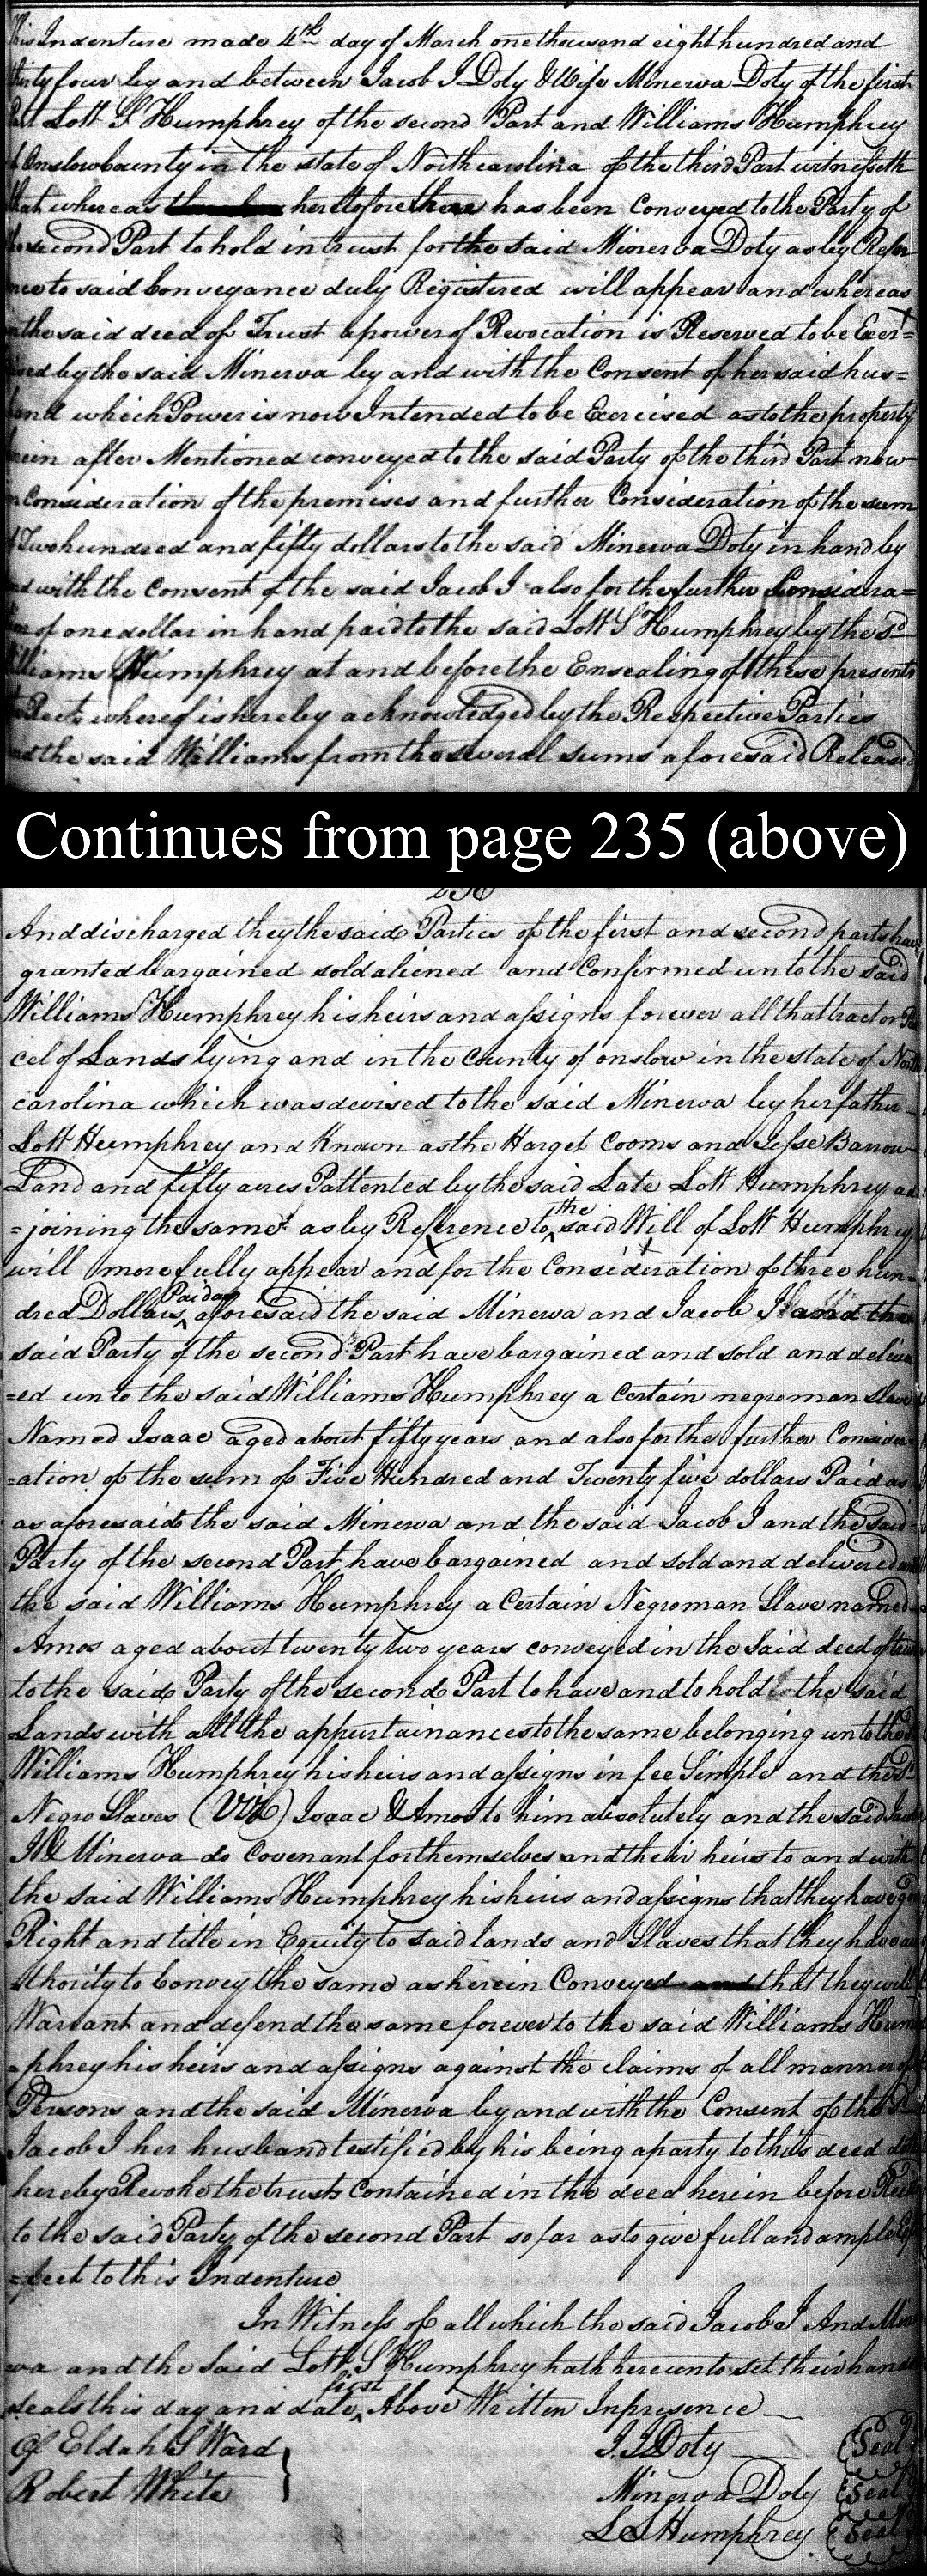 his Indenture made 4th day of March one thousand eight hundred and
thirty four by and between Jacob J Doty & Wife Minerva Doty of the first
Part Lott S Humphrey of the second Part and Williams Humphrey
of Onslow County in the state of North carolina of the third Part witnesseth
that whereas heretofore there has been Conveyed to the Party of
the second Part to hold in trust for the said Minerva Doty as by Refer
nce to said Conveyance duly Registered will appear and whereas
in the said deed of Trust a power of Revocation is Reserved to be Exer=
ised by the said Minerva by and with the Consent of her said hus=
band which Power is now Intended to be Exercised as to the property
herein after Mentioned conveyed to the said Party of the third Part now
in Consideration of the premises and further Consideration of the sum
of Two hundred and fifty dollars to the said Minerva Doty in hand by
and with the Consent of the said Jacob J also for the further Considera=
tion of one dollar in hand paid to the said Lott S Humphrey by the sd
Williams Humphrey at and before the Ensealing of these presents
the Rect whereof is hereby acknowledged by the Respective Parties
and the said Williams from the several sums aforesaid Released
Continues from page 235 (above)
236
And discharged they the said Parties of the first and second parts have
granted bargained sold aliened and Confirmed unto the said
Williams Humphrey his heirs and assigns forever all that tract or Par
cel of Lands lying and in the County of onslow in the state of North
carolina which was devised to the said Minerva by her father
Lott Humphrey and Known as the Harget Cooms and Jesse Barrow
Land and fifty acres Pattented by the said Late Lott Humphrey ad
=joining the same as by Reference to the said Will of Lott Humphrey
will more fully appear and for the Consideration of three hun=
dred Dollars Paid as aforesaid the said Minerva and Jacob J and the
said Party of the second Part have bargained and sold and deliver
=ed unto the said Williams Humphrey a Certain negro man slave
Named Isaac aged about fifty years and also for the further Consider
=ation of the sum of Five Hundred and Twenty five dollars Paid as
as aforesaid the said Minerva and the said Jacob J and the said
Party of the second Part have bargained and sold and delivered
the said Williams Humphrey a Certain Negro man Slave named
Amos aged about twenty two years conveyed in the Said deed of trust
to the said Party of the second Part to have and to hold the said
Lands with all the appurtainances to the same belonging unto the sd
Williams Humphrey his heirs and assigns in fee Simple and the sd
Negro Slaves (Viz) Isaac & Amos to him absolutely and the said Jacob
J & Minerva do Covenant for themselves and their heirs to and with
the said Williams Humphrey his heirs and assigns that they have good
Right and title in Equity to said lands and Slaves that they have au
thority to Convey the same as herein Conveyed and that they will
Warrant and defend the same forever to the said Williams Hum
=phrey his heirs and assigns against the claims of all manner of
Persons and the said Minerva by and with the Consent of the sd
Jacob J her husband testified by his being a party to this deed doth
hereby Revoke the trusts Contained in the deed herein before Recited
to the said Party of the second Part so far as to give full and ample ef
=fect to this Indenture
In Witness of all which the said Jacob J And Miner
va and the Said Lott S Humphrey hath hereunto set their hands
seals this day and date first Above Written In presence
Of Eldah S Ward J. J Doty (Seal)
Robert White Minerva Doty (Seal)
L S Humphrey (Seal)